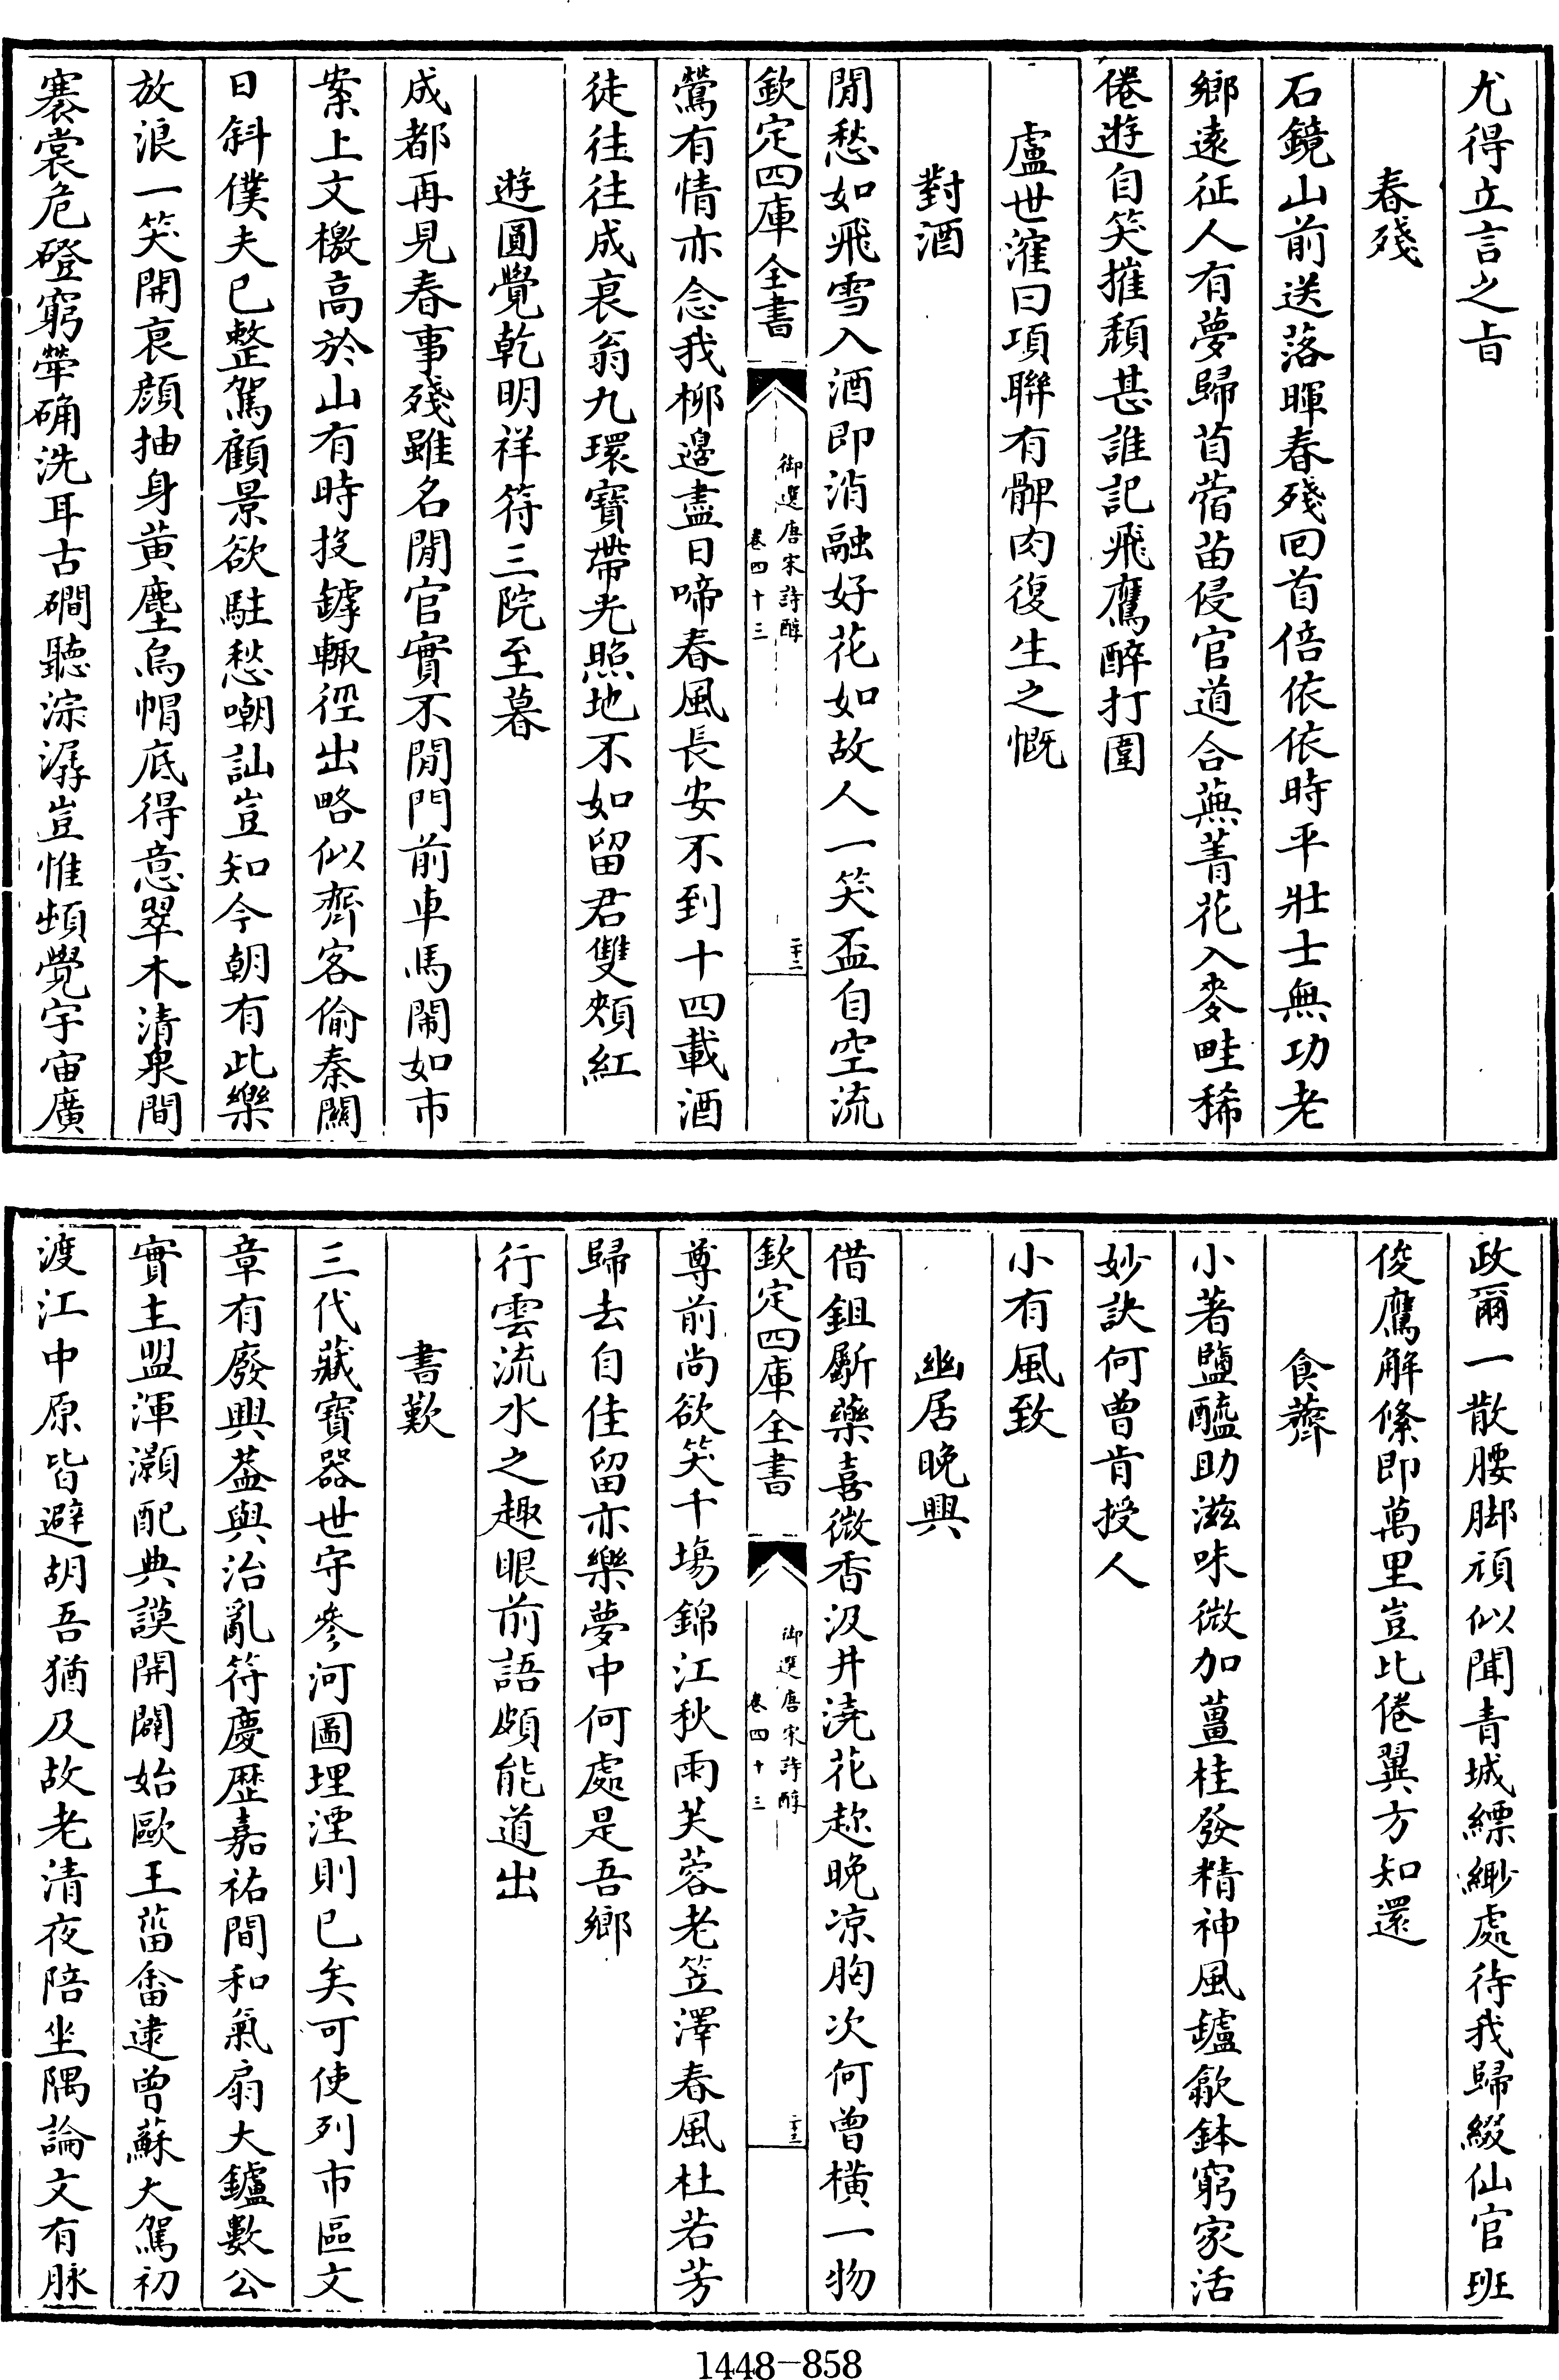 尤得立言之旨
春殘
石鏡山前送落暉春殘回首倍依依時平壯士無功老
鄉遠征人有夢歸苜蓿苗侵官道合蕪菁花入麥畦稀
倦遊自笑摧頽甚誰記飛鷹醉打圍
盧世㴶曰項聯有髀肉復生之慨
對酒
閒愁如飛雪入酒即消融好花如故人一笑盃自空流
欽定四庫全書
御選唐宋詩醇
卷四十三
二十二
鶯有情亦念我柳邊盡日啼春風長安不到十四載酒
徒往往成衰翁九環寶帶光照地不如留君雙頰紅
遊圓覺乾明祥符三院至暮
成都再見春事殘雖名閒官實不閒門前車馬鬧如市
案上文檄高於山有時投罅輙徑出略似齊客偷秦關
日斜僕夫已整駕顧景欲駐愁嘲訕豈知今朝有此樂
放浪一笑開衰顔抽身黄塵烏帽底得意翠木清泉間
褰裳危磴窮犖确洗耳古磵聽淙潺豈惟頓覺宇宙廣
政爾一散腰脚頑似聞青城縹緲處待我歸綴仙官班
俊鷹解絛即萬里豈比倦翼方知還
食薺
小著鹽醯助滋味微加薑桂發精神風鑪歙鉢窮家活
妙訣何曾肯授人
小有風致
幽居晚興
借鉏斸藥喜微香汲井澆花趂晚凉胸次何曾橫一物
欽定四庫全書
御選唐宋詩醇
卷四十三
二十三
尊前尚欲笑千塲錦江秋雨芙蓉老笠澤春風杜若芳
歸去自佳留亦樂夢中何處是吾鄉
行雲流水之趣眼前語頗能道出
書歎
三代藏寶器世守參河圖埋湮則已矣可使列市區文
章有廢興蓋與治亂符慶歴嘉祐間和氣扇大鑪數公
實主盟渾灝配典謨開闢始歐王菑畬逮曾蘇大駕初
渡江中原皆避胡吾猶及故老清夜陪坐隅論文有脉
1448—858